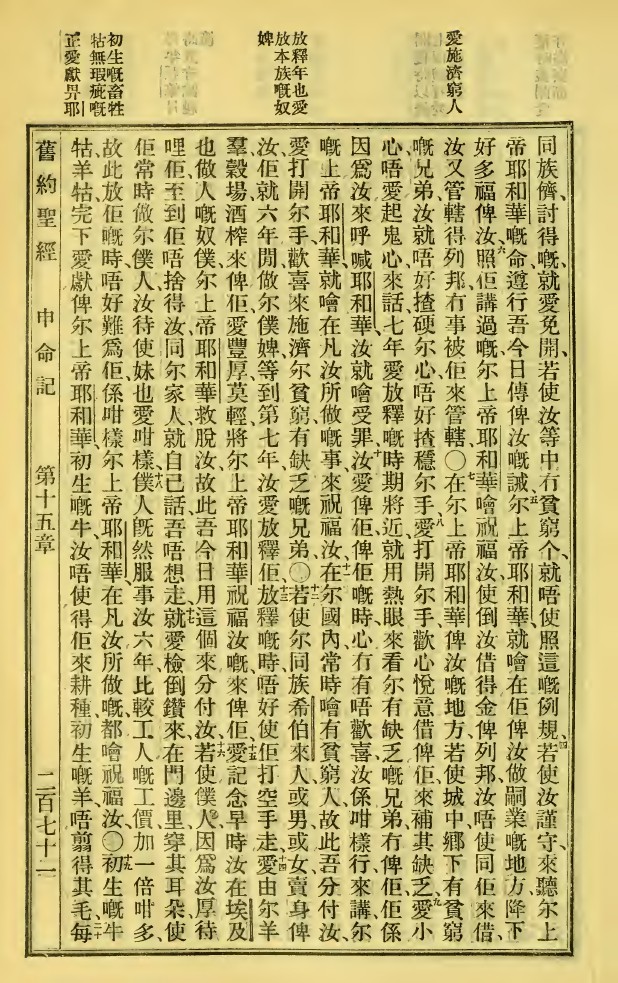 愛施濟窮人
放釋年也愛
放本族嘅奴
婢
初生嘅畜牲
牯無瑕疵嘅
正愛獻畀耶
同族儕討得嘅就愛免開若使汝等中冇貧窮个就唔使照這嘅例規四若使汝謹守來聽尔上
帝耶和華嘅命遵行吾今日傳俾汝嘅誡五尔上帝耶和華就噲在佢俾汝做嗣業嘅地方降下
好多福俾汝六照佢講過嘅尔上帝耶和華噲祝福汝使倒汝借得金俾列邦汝唔使同佢來借
汝又管轄得列邦冇事被佢來管轄〇七在尔上帝耶和華俾汝嘅地方若使城中鄉下有貧窮
嘅兄弟汝就唔好揸硬尔心唔好揸穩尔手八愛打開尔手歡心悅意借俾佢來補其缺乏九愛小
心唔愛起鬼心來話七年愛放釋嘅時期將近就用熱眼來看尔有缺乏嘅兄弟冇俾佢佢係
因爲汝來呼喊耶和華汝就噲受罪十汝愛俾佢俾佢嘅時心冇有唔歡喜汝係咁樣行來講尔
嘅上帝耶和華就噲在凡汝所做嘅事來祝福汝十一在尔國內常時噲有貧窮人故此吾分付汝
愛打開尔手歡喜來施濟尔貧窮有缺乏嘅兄弟〇十二若使尔同族希伯來人或男或女賣身俾
汝佢就六年間做尔僕婢等到第七年汝愛放釋佢十三放釋嘅時唔好使佢打空手走十四愛由尔羊
羣穀場酒榨來俾佢愛豐厚莫輕將尔上帝耶和華祝福汝嘅來俾佢十五愛記念早時汝在埃及
也做人嘅奴僕尔上帝耶和華救脫汝故此吾今日用這個來分付汝十六若使僕人因爲汝厚待
哩佢至到佢唔捨得汝同尔家人就自己話吾唔想走十七就愛檢倒鑽來在門邊里穿其耳朵使
佢常時做尔僕人汝待使妹也愛咁樣十八僕人旣然服事汝六年比較工人嘅工價加一倍咁多
故此放佢嘅時唔好難爲佢係咁樣尔上帝耶和華在凡汝所做嘅都噲祝福汝〇十九初生嘅牛
牯羊牯完下愛獻俾尔上帝耶和華初生嘅牛汝唔使得佢來耕種初生嘅羊唔翦得其毛二十每
舊約聖經 申命記 第十五章 二百七十一